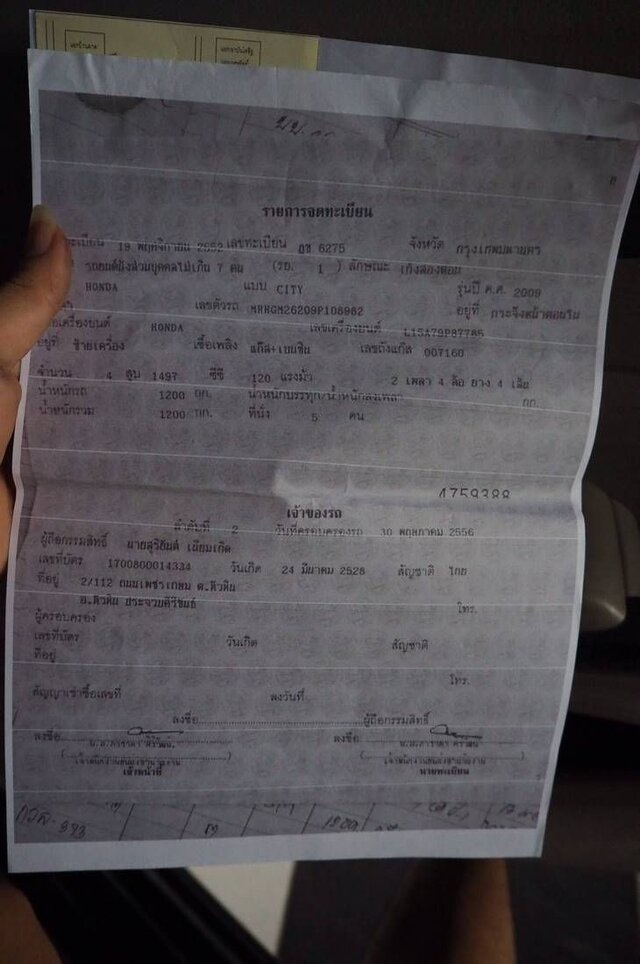 รายการจดทะเบียน
ทะเบียน 19 พฤศจิกายน 2552 เลขทะเบียน ฎช 6275 จังหวัด กรุงเทพมหานคร
รถยนต์นั่งส่วนบุคคลไม่เกิน 7 คน (รย. 1) ลักษณะ เก๋งสองตอน
HONDA แบบ CITY รุ่นปี ค.ศ. 2009
เลขตัวรถ MRHGM26209P108982 อยู่ที่ กระจังหน้าตอนใน
เครื่องยนต์ HONDA เลขเครื่องยนต์ L15A79P87785
อยู่ที่ ซ้ายเครื่อง เชื้อเพลิง แก๊ส+เบนซิน เลขถังแก๊ส 007160
จำนวน 4 สูบ 1497 ซีซี 120 แรงม้า 2 เพลา 4 ล้อ ยาง 4 เส้น
น้ำหนักรถ 1200 กก. น้ำหนักบรรทุก/น้ำหนักลงเพลา กก.
น้ำหนักรวม 1200 กก. ที่นั่ง 5 คน
4759388
เจ้าของรถ
ลำดับที่ 2 วันที่ครอบครองรถ 30 พฤษภาคม 2556
ผู้ถือกรรมสิทธิ์ นายสุริยันต์ เนียมเกิด
เลขที่บัตร 1700800014334 วันเกิด 24 มีนาคม 2528 สัญชาติ ไทย
ที่อยู่ 2/112 ถนนเพชรเกษม ต.หัวหิน
อ.หัวหิน ประจวบคีรีขันธ์ โทร.
ผู้ครอบครอง
เลขที่บัตร วันเกิด สัญชาติ
ที่อยู่
โทร.
สัญญาเช่าซื้อเลขที่ ลงวันที่
ลงชื่อ ผู้ถือกรรมสิทธิ์
ลงชื่อ ลงชื่อ
เจ้าหน้าที่ นายทะเบียน